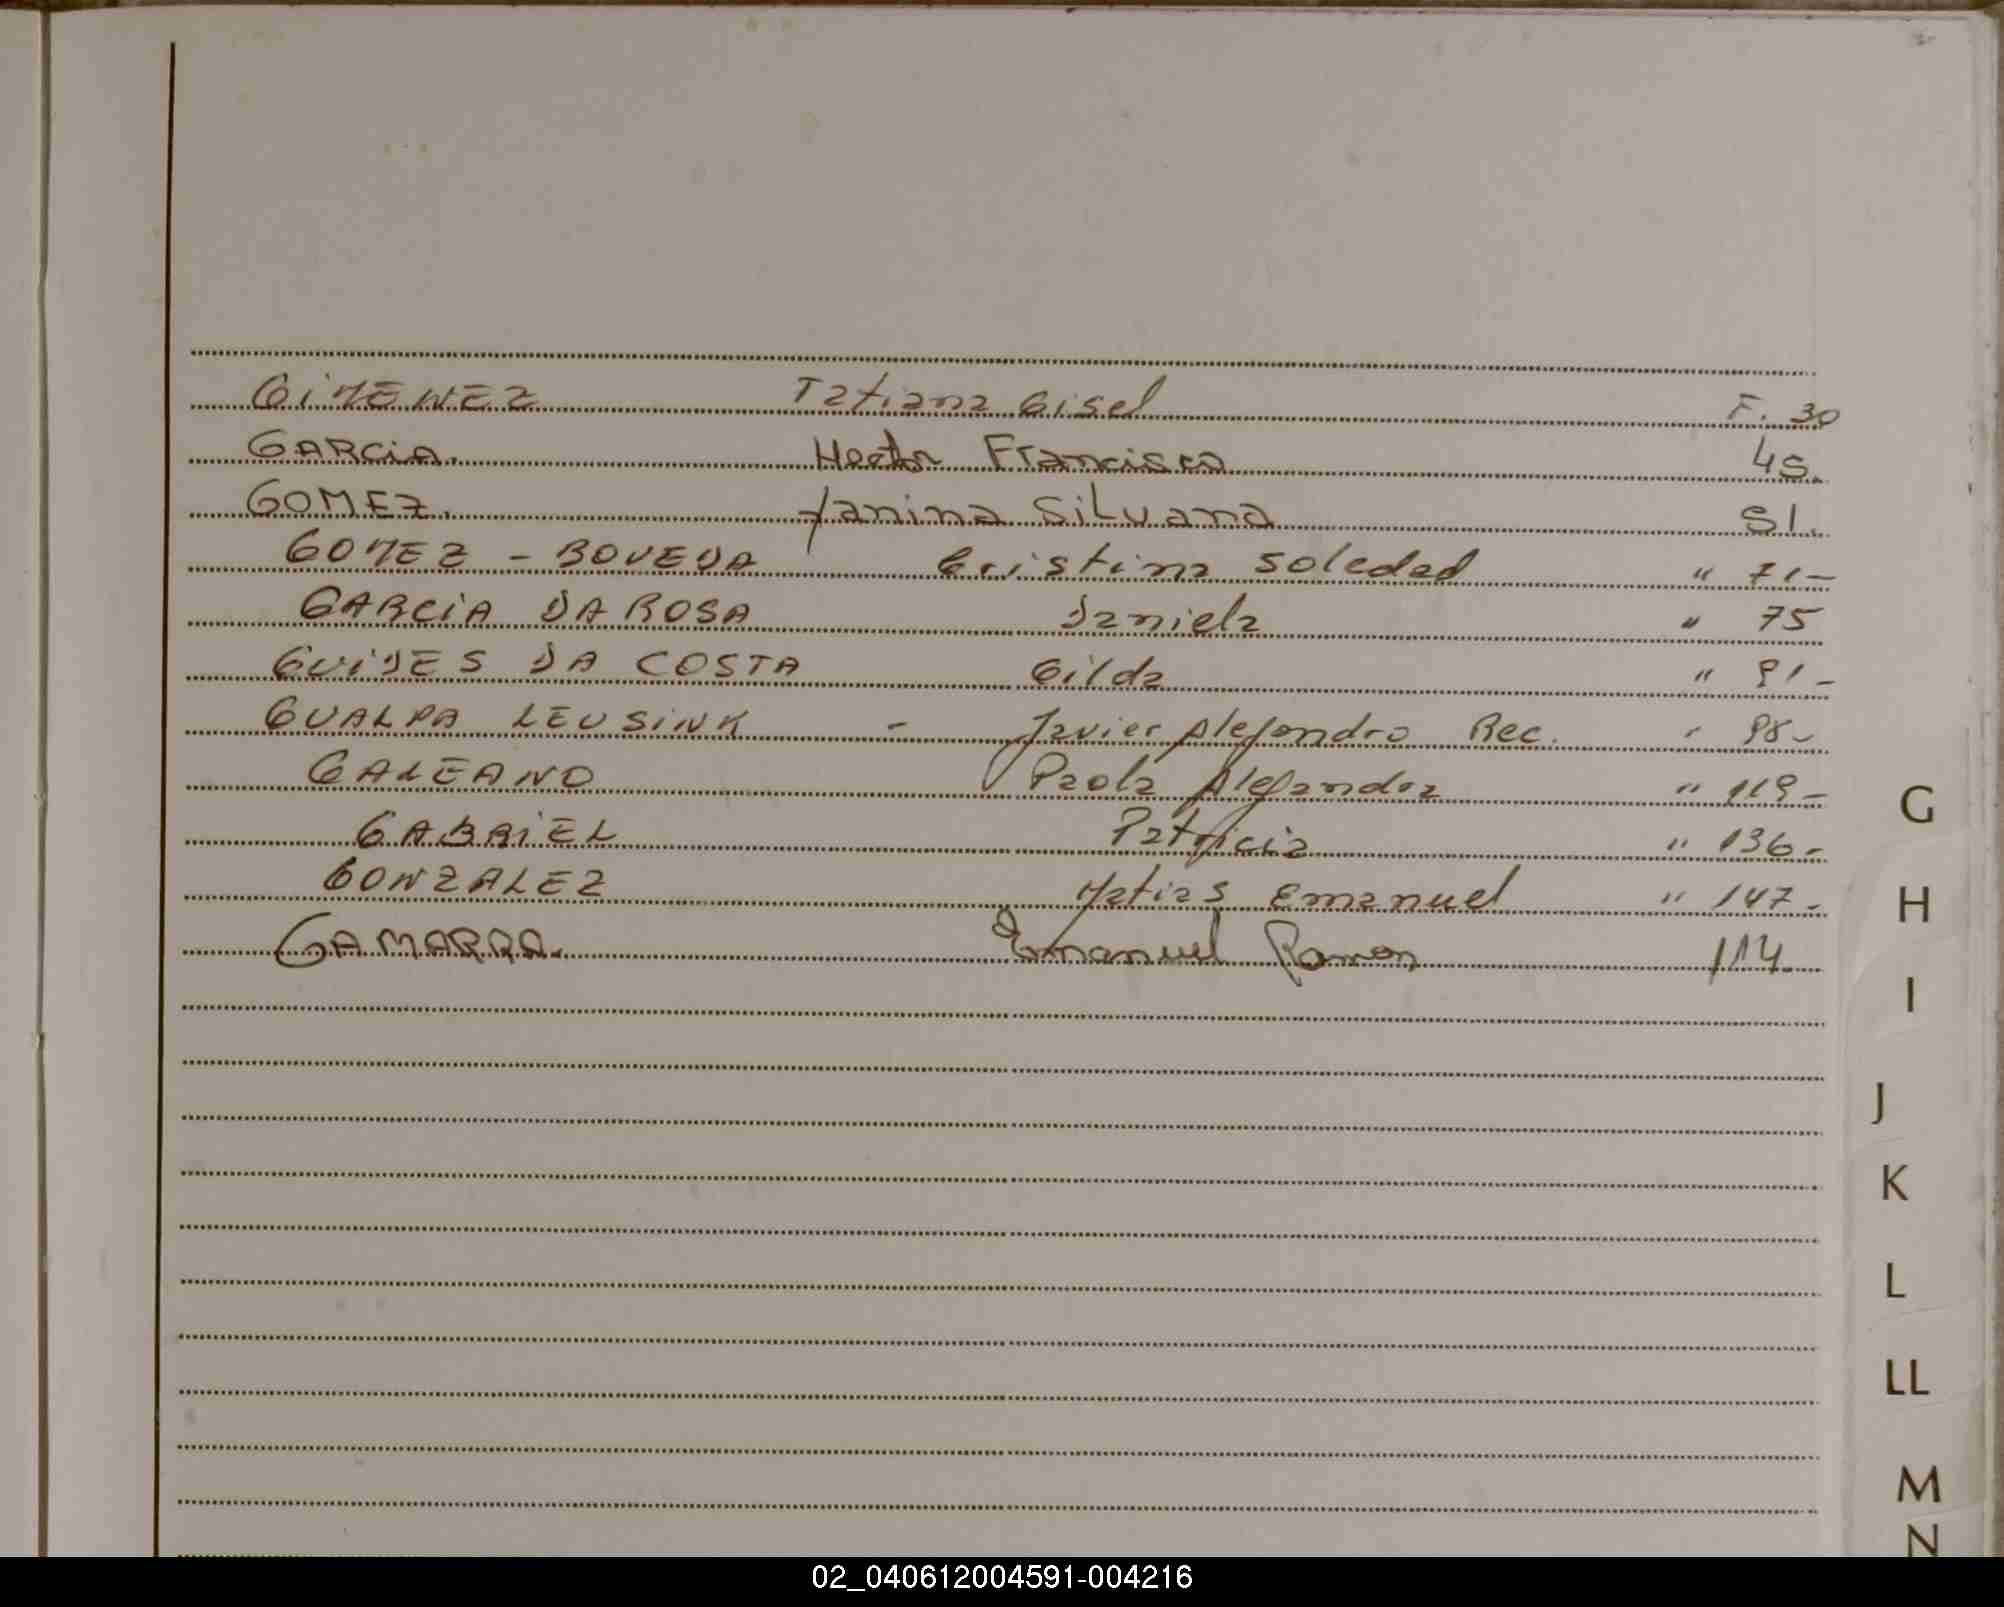 GIMENEZ Tatiana Gisel F. 30
GARCIA. Hector Francisco 45.
GOMEZ. Yanina Silvana 51.
GOMEZ - BOVEDA Cristina Soledad " 71-
GARCIA DA ROSA Daniela " 75
GUIDES DA COSTA Gilda " 91-
GUALPA LEUSINK - Javier Alejandro Rec. " 98-
GALEANO Paola Alejandra " 119-
GABRIEL Patricia " 136-
GONZALEZ Matias Emanuel " 147-
GAMARRA. Emanuel Ramon 114.
G
H
I
J
K
L
LL
M
N
02_040612004591-004216